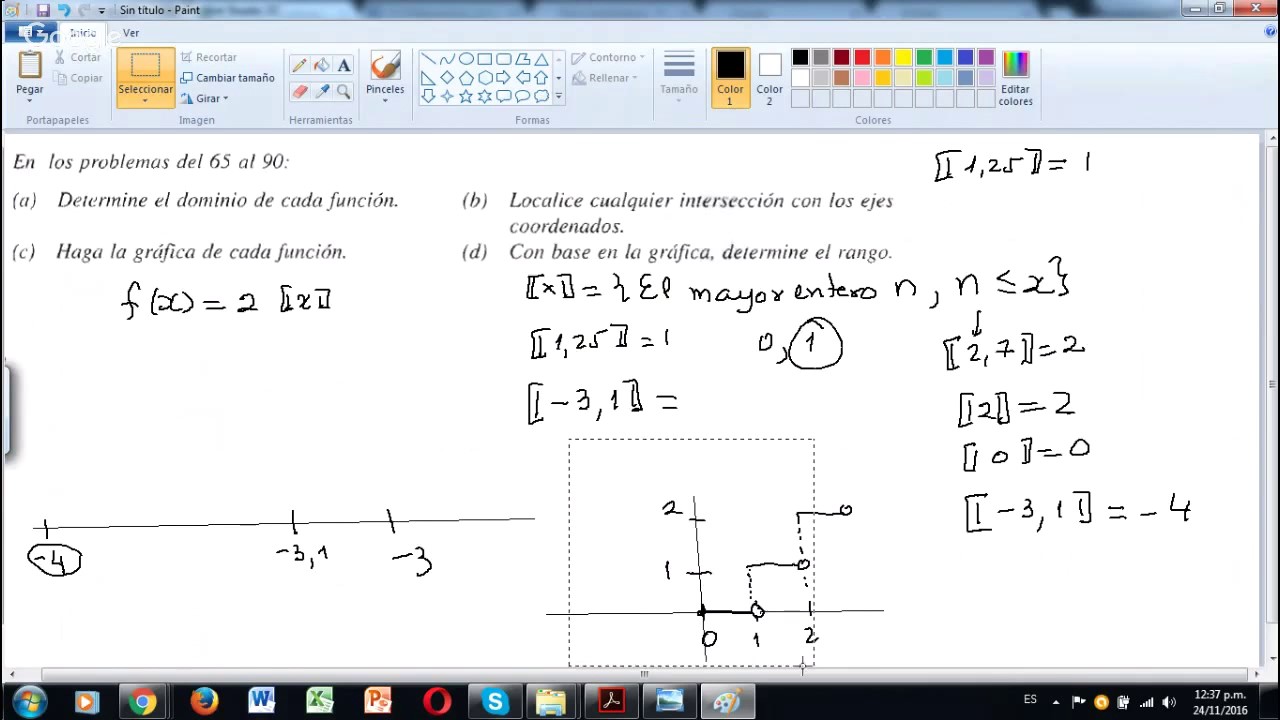 Sin título - Paint
Inicio Ver
Pegar
Cortar
Copiar
Portapapeles
Seleccionar
Recortar
Cambiar tamaño
Girar
Imagen
A
Herramientas
Pinceles
Contorno
Rellenar
Formas
Tamaño
Color 1
Color 2
Editar colores
Colores
En los problemas del 65 al 90:
(a) Determine el dominio de cada función.
(b) Localice cualquier intersección con los ejes
coordenados.
(c) Haga la gráfica de cada función.
(d) Con base en la gráfica, determine el rango.
⟦1,25⟧ = 1
f(x) = 2 ⟦x⟧
⟦x⟧ = { El mayor entero n, n ≤ x}
⟦1,25⟧ = 1
0, 1
⟦2,7⟧ = 2
⟦-3,1⟧ =
⟦2⟧ = 2
⟦0⟧ = 0
⟦-3,1⟧ = -4
-4 -3,1 -3
2
1
0 1 2
ES
12:37 p.m.
24/11/2016